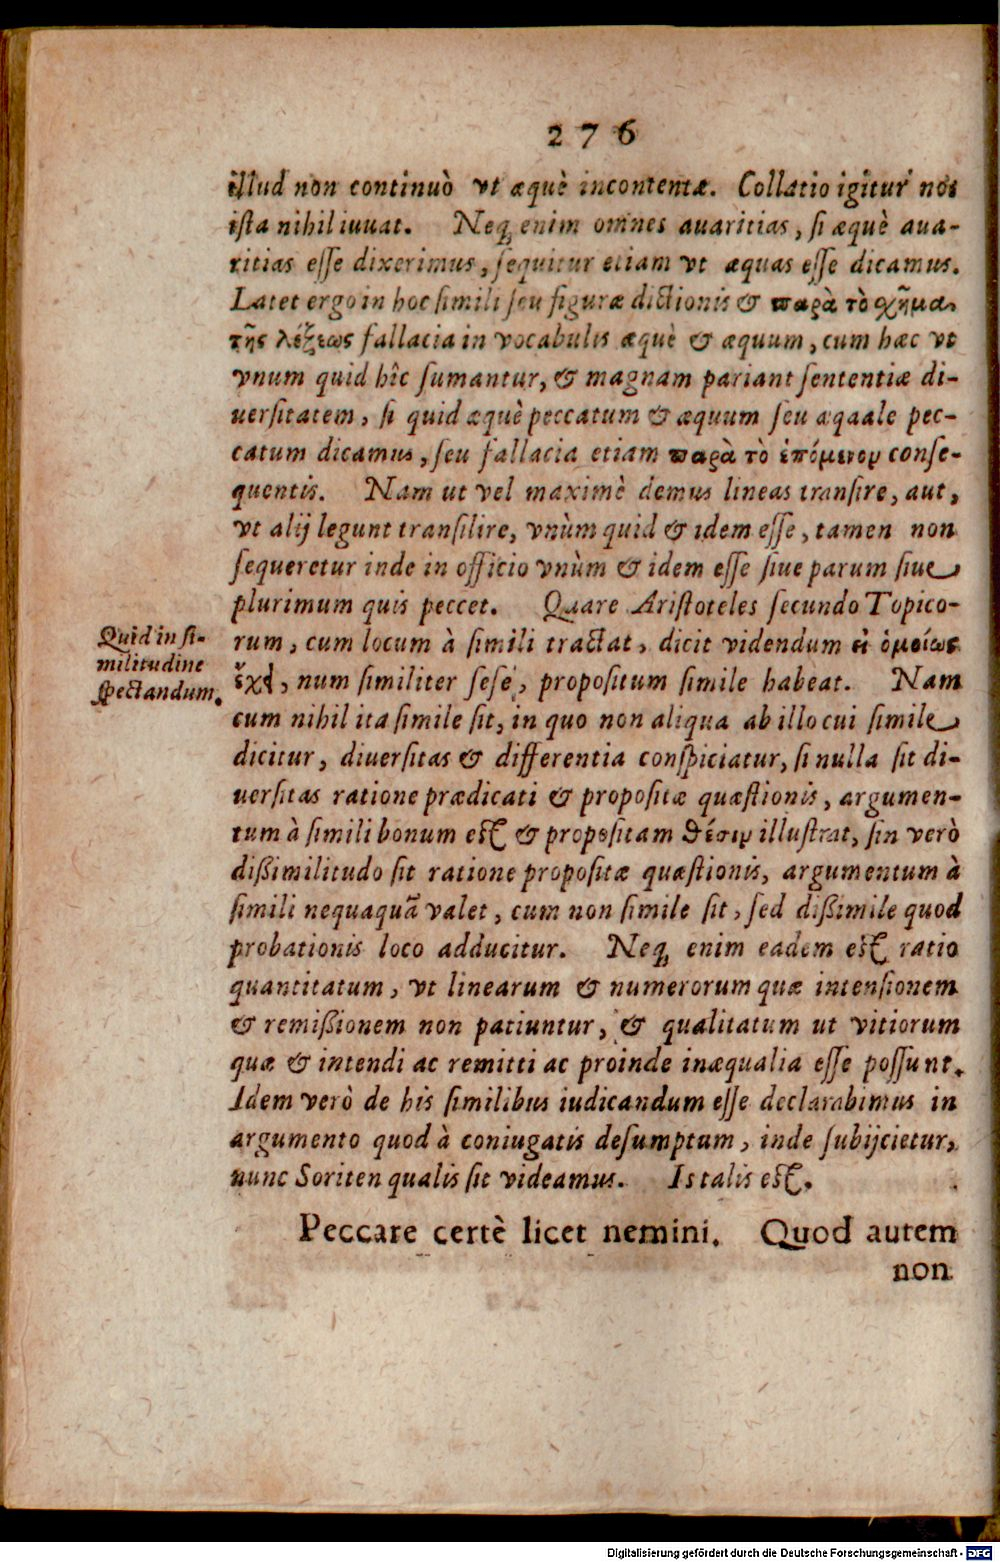 276
illud non continuò vt æquè incontentæ. Collatio igitur nos
ista nihil iuuat. Neq; enim omnes auaritias, si æquè aua-
ritias esse dixerimus, sequitur etiam vt æquas esse dicamus.
Latet ergo in hoc simili seu figuræ dictionis & παρὰ τὸ σχῆμα
τῆς λέξεως fallacia in vocabulis æquè & æquum, cum hæc vt
vnum quid hîc sumantur, & magnam pariant sententiæ di-
uersitatem, si quid æquè peccatum & æquum seu æqaale pec-
catum dicamus, seu fallacia etiam παρὰ τὸ ἑπόμενον conse-
quentis. Nam ut vel maximè demus lineas transire, aut,
vt alij legunt transilire, vnùm quid & idem esse, tamen non
sequeretur inde in officio vnùm & idem esse siue parum siue
plurimum quis peccet. Quare Aristoteles secundo Topico-
rum, cum locum à simili tractat, dicit videndum εἰ ὁμοίως
Quid in si-
militudine
spectandum.
ἔχει, num similiter sese, propositum simile habeat. Nam
cum nihil ita simile sit, in quo non aliqua ab illo cui simile
dicitur, diuersitas & differentia conspiciatur, si nulla sit di-
uersitas ratione prædicati & propositæ quæstionis, argumen-
tum à simili bonum est & propositam θέσιν illustrat, sin verò
dißimilitudo sit ratione propositæ quæstionis, argumentum à
simili nequaquā valet, cum non simile sit, sed dißimile quod
probationis loco adducitur. Neq; enim eadem est ratio
quantitatum, vt linearum & numerorum quæ intensionem
& remißionem non patiuntur, & qualitatum ut vitiorum
quæ & intendi ac remitti ac proinde inæqualia esse possunt.
Idem verò de his similibus iudicandum esse declarabimus in
argumento quod à coniugatis desumptum, inde subijcietur,
nunc Soriten qualis sit videamus. Is talis est.
Peccare certè licet nemini. Quod autem
non
Digitalisierung gefördert durch die Deutsche Forschungsgemeinschaft - DFG